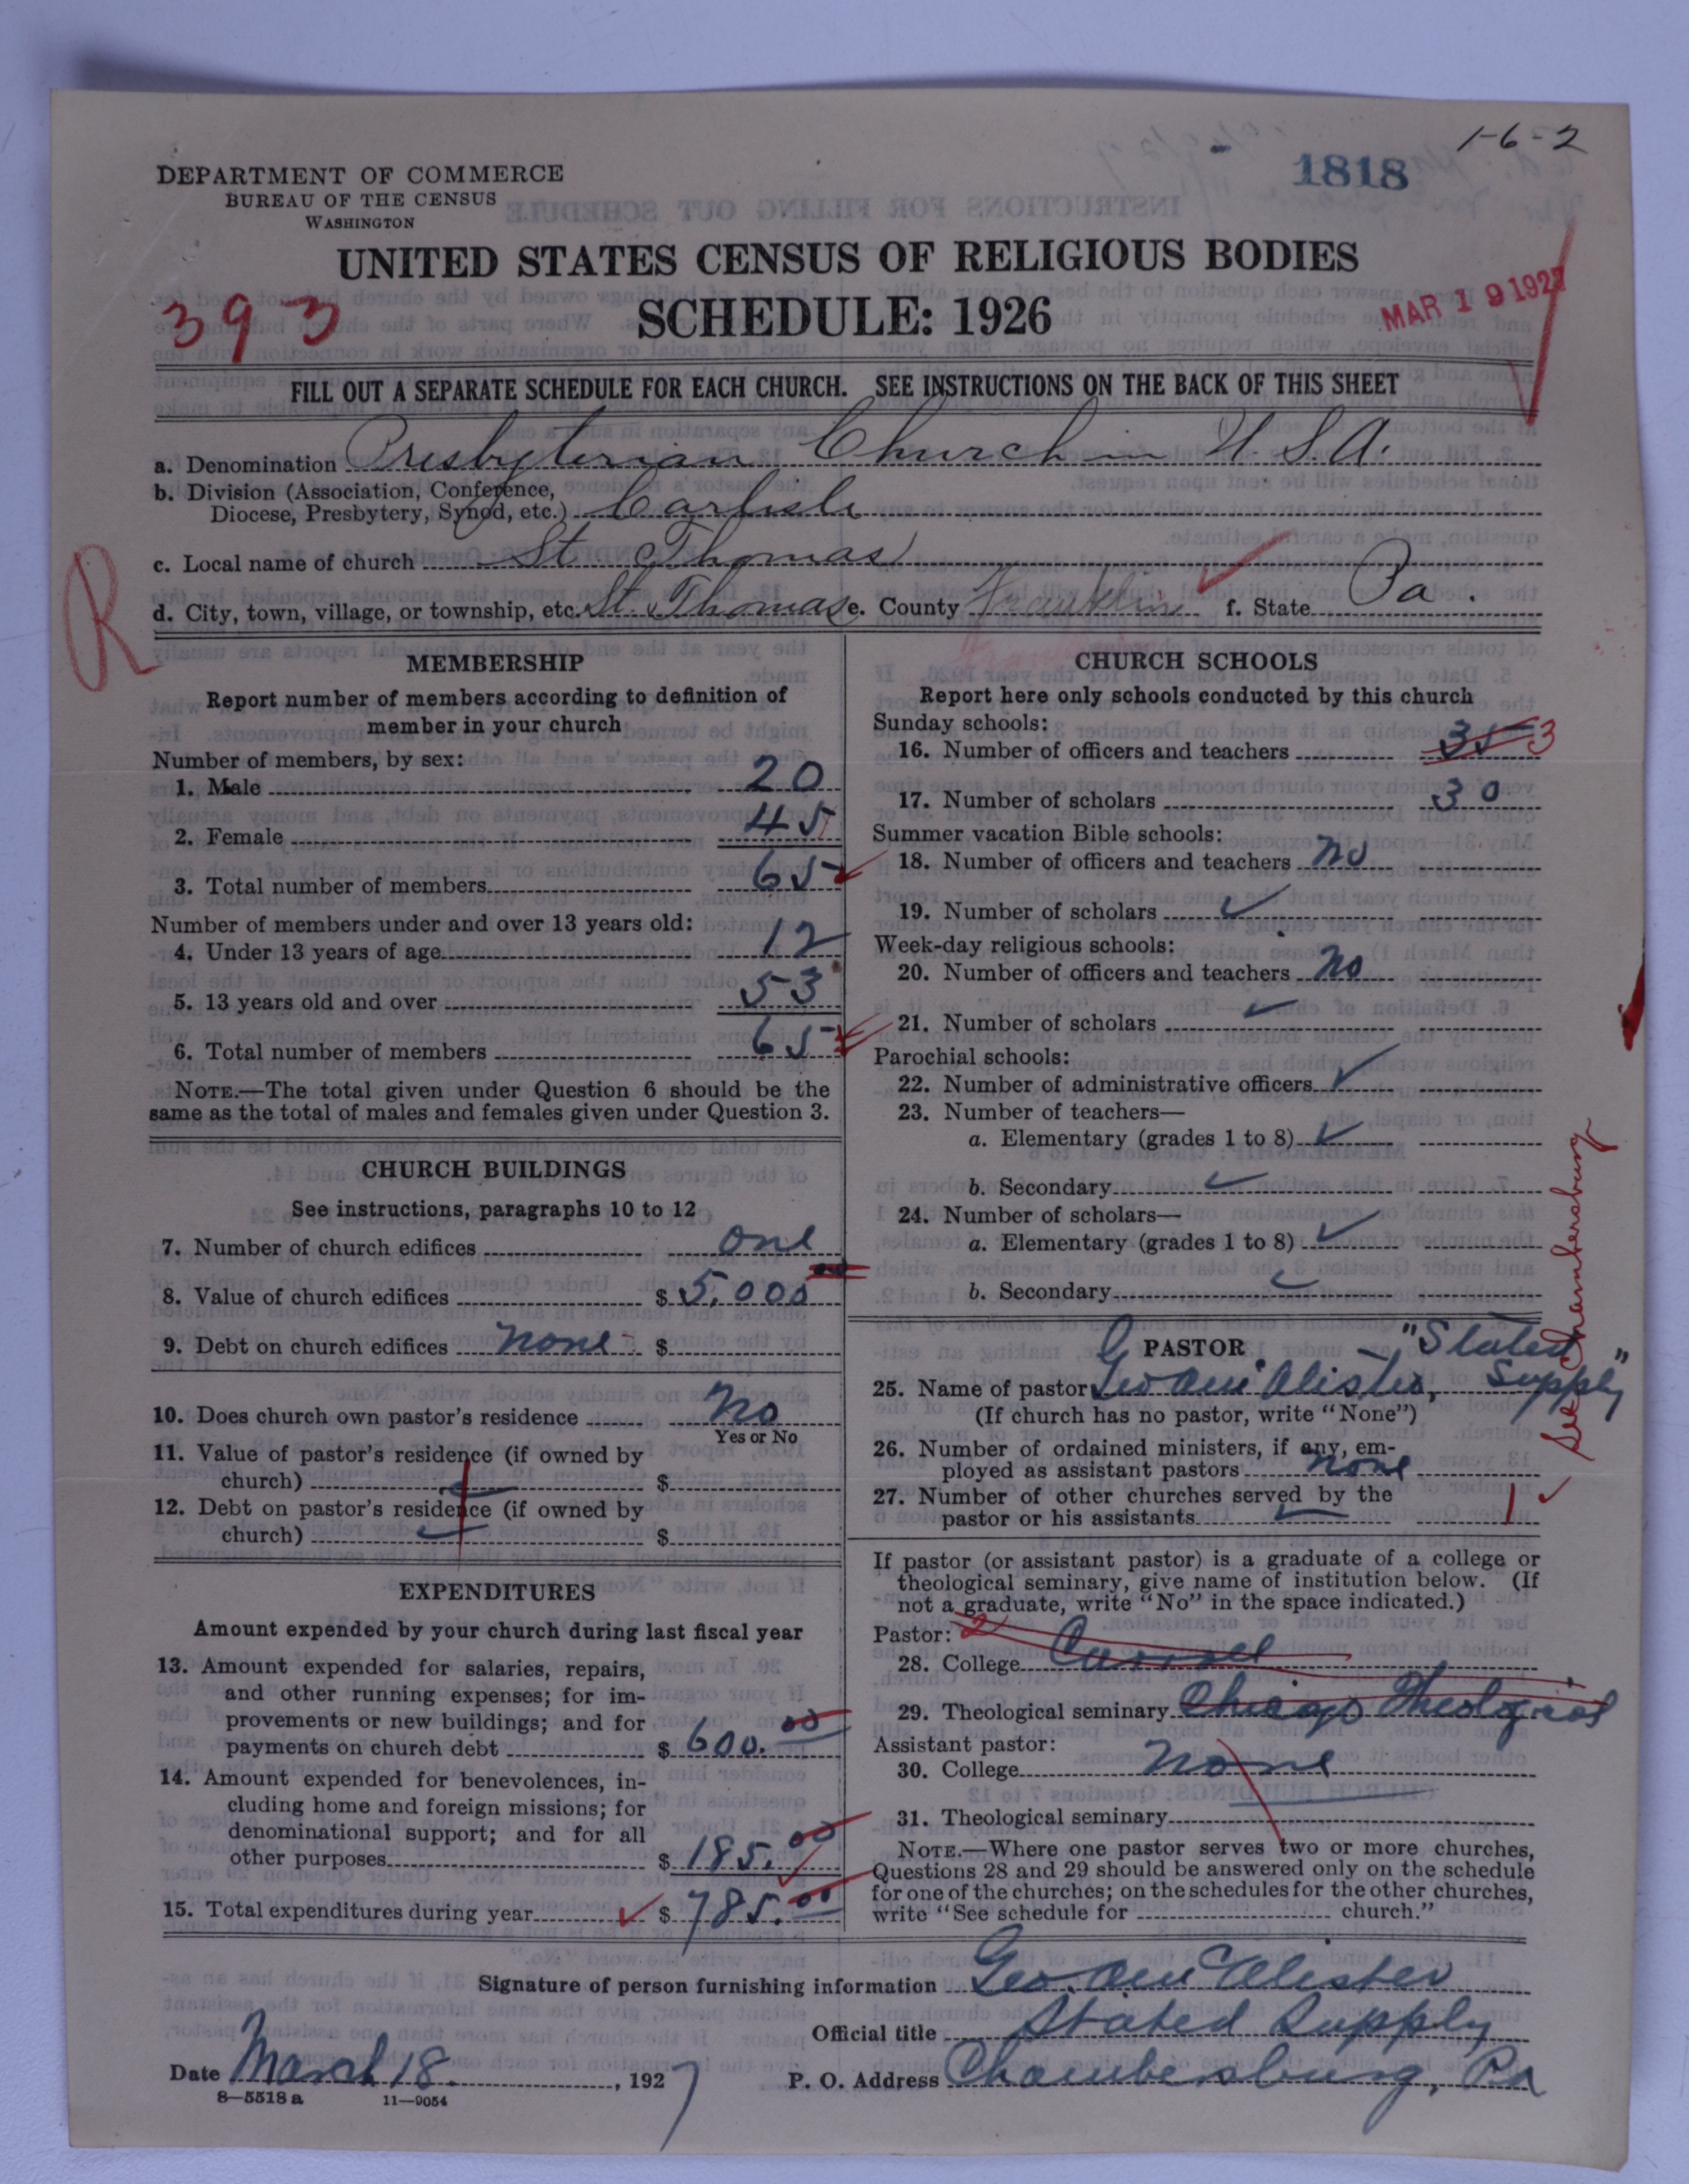 1-6-2
1818
DEPARTMENT OF COMMERCE
BUREAU OF THE CENSUS
WASHINGTON
UNITED STATES CENSUS OF RELIGIOUS BODIES
SCHEDULE: 1926
393
MAR 19 1927
FILL OUT A SEPARATE SCHEDULE FOR EACH CHURCH. SEE INSTRUCTIONS ON THE BACK OF THIS SHEET
a. Denomination Presbyterian Church in U.S.A.
b. Division (Association, Conference,
Diocese, Presbytery, Synod, etc.) Carlisle
c. Local name of church St Thomas
d. City, town, village, or township, etc. St. Thomas e. County Franklin f. State Pa.
R
MEMBERSHIP
Report number of members according to definition of
member in your church
Number of members, by sex:
1. Male 20
2. Female 45
3. Total number of members 65
Number of members under and over 13 years old:
4. Under 13 years of age 12
5. 13 years old and over 53
6. Total number of members 65
NOTE.—The total given under Question 6 should be the
same as the total of males and females given under Question 3.
CHURCH BUILDINGS
See instructions, paragraphs 10 to 12
7. Number of church edifices one
8. Value of church edifices $ 5,000
9. Debt on church edifices none $
10. Does church own pastor's residence No
Yes or No
11. Value of pastor's residence (if owned by
church) $
12. Debt on pastor's residence (if owned by
church) $
EXPENDITURES
Amount expended by your church during last fiscal year
13. Amount expended for salaries, repairs,
and other running expenses; for im-
provements or new buildings; and for
payments on church debt $ 600.00
14. Amount expended for benevolences, in-
cluding home and foreign missions; for
denominational support; and for all
other purposes $ 185.00
15. Total expenditures during year $ 785.00
CHURCH SCHOOLS
Report here only schools conducted by this church
Sunday schools:
16. Number of officers and teachers 35 3
17. Number of scholars 30
Summer vacation Bible schools:
18. Number of officers and teachers no
19. Number of scholars
Week-day religious schools:
20. Number of officers and teachers No
21. Number of scholars
Parochial schools:
22. Number of administrative officers
23. Number of teachers—
a. Elementary (grades 1 to 8)
b. Secondary
24. Number of scholars—
a. Elementary (grades 1 to 8)
b. Secondary
PASTOR
25. Name of pastor Geo. McAlister, "Stated Supply"
(If church has no pastor, write "None")
26. Number of ordained ministers, if any, em-
ployed as assistant pastors none
27. Number of other churches served by the
pastor or his assistants 1
See Chambersburg
If pastor (or assistant pastor) is a graduate of a college or
theological seminary, give name of institution below. (If
not a graduate, write "No" in the space indicated.)
Pastor: 2
28. College
29. Theological seminary Chicago Theological
Assistant pastor:
30. College None
31. Theological seminary
NOTE.—Where one pastor serves two or more churches,
Questions 28 and 29 should be answered only on the schedule
for one of the churches; on the schedules for the other churches,
write "See schedule for church."
Signature of person furnishing information Geo. McAlister
Official title Stated Supply
Date March 18. , 1927 P. O. Address Chambersburg, Pa
8—5518 a 11—9054